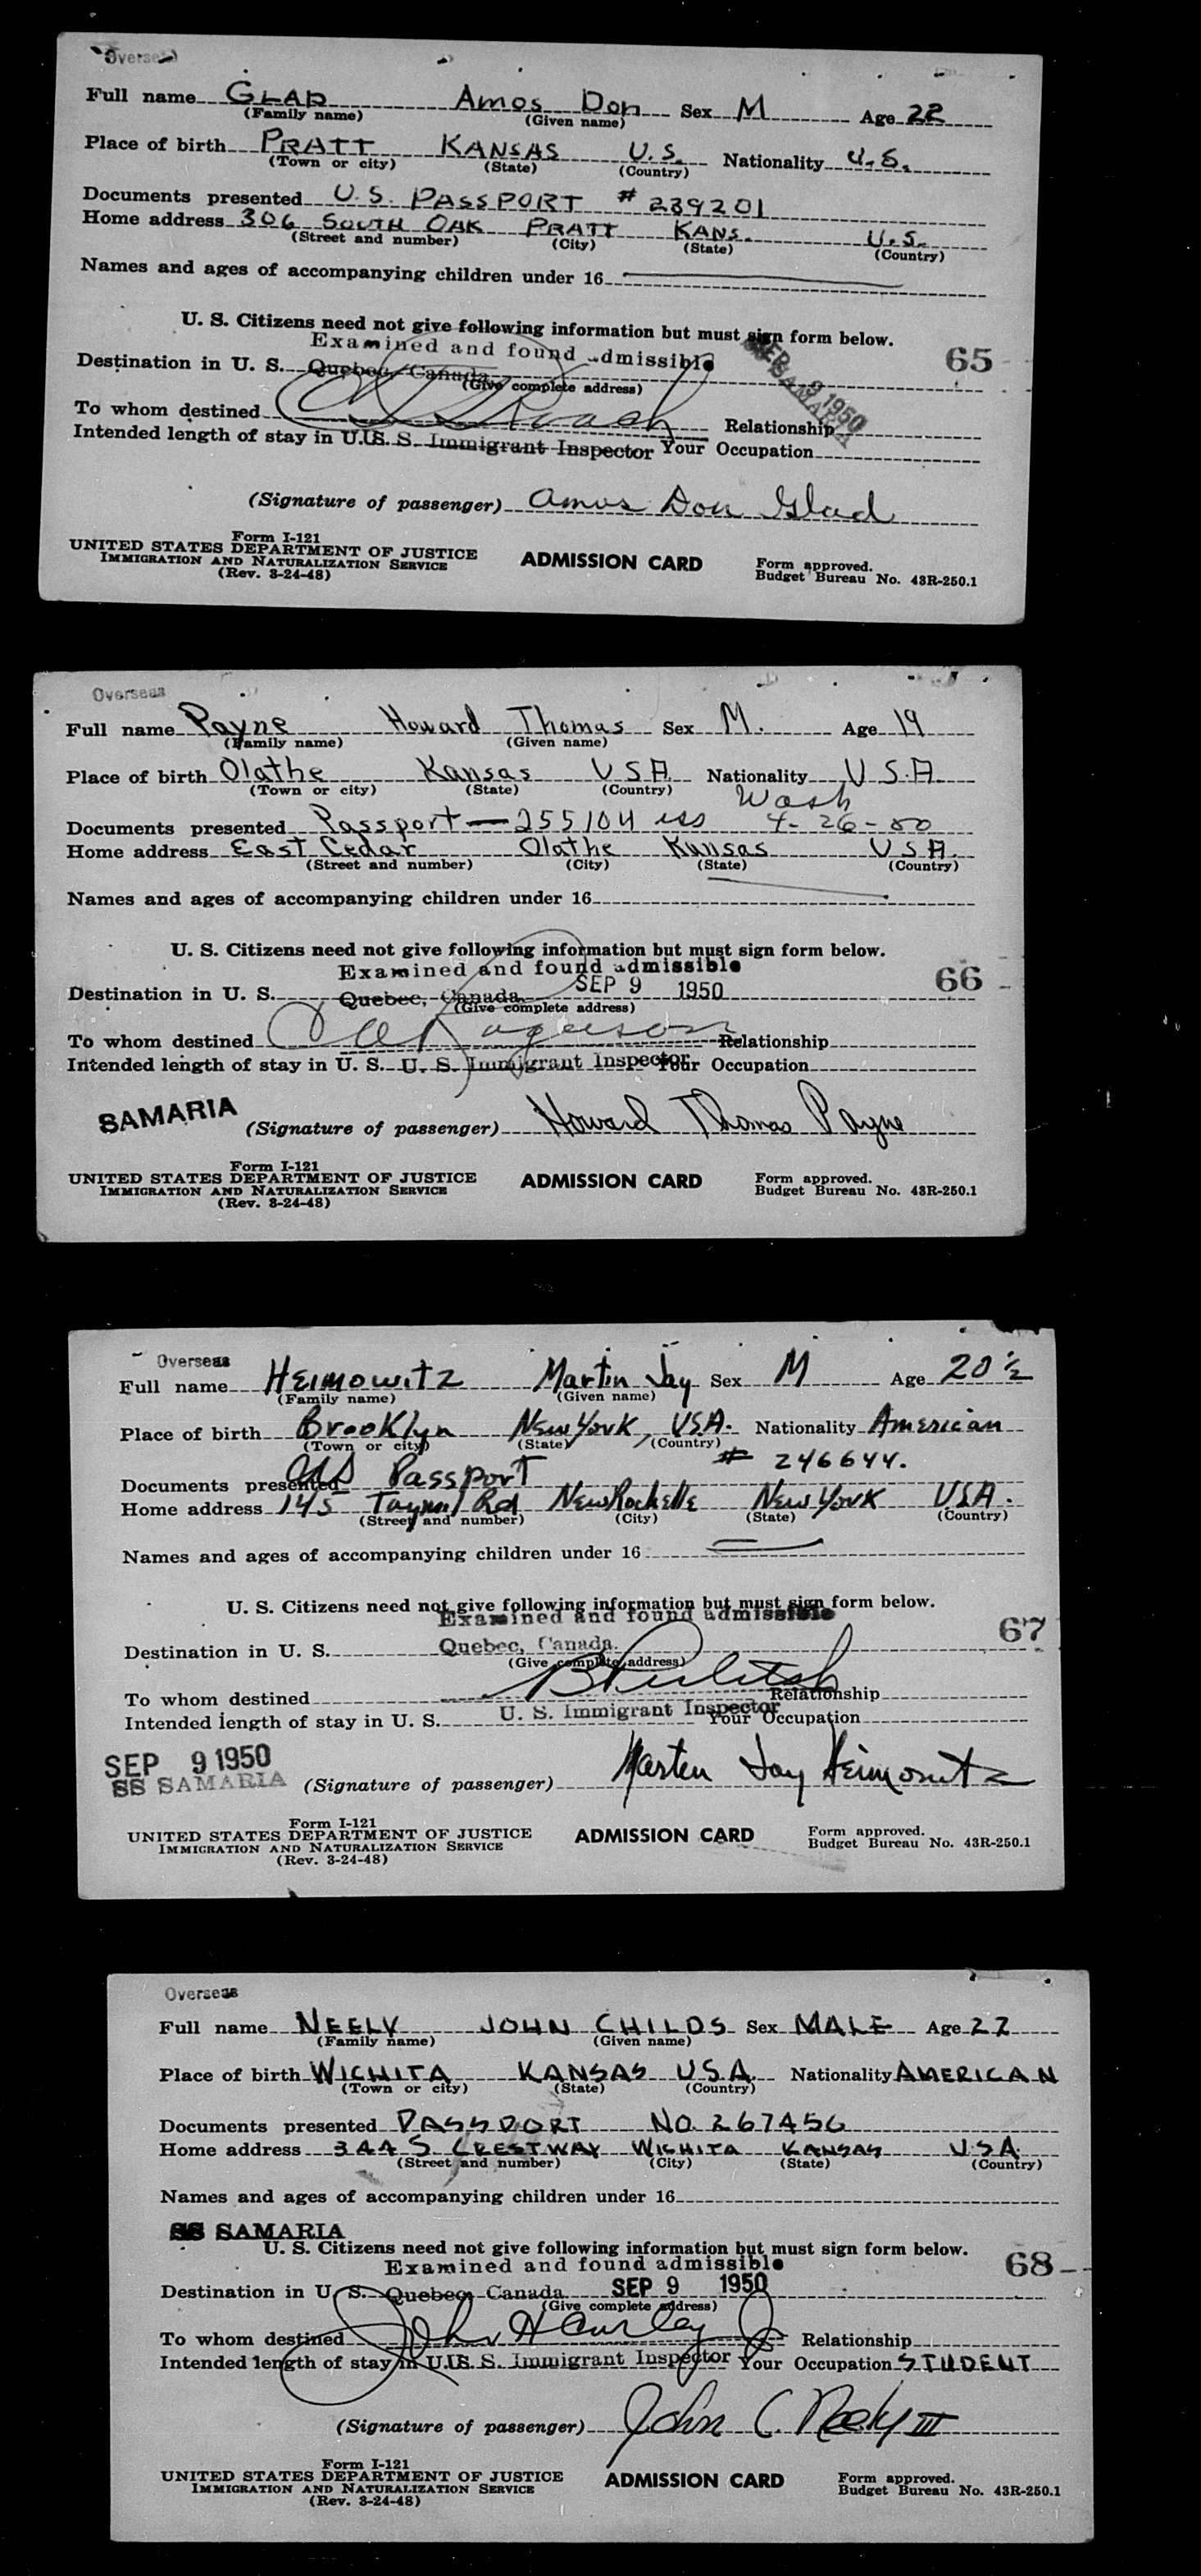 Overseas
Full name GLAD Amos Don Sex M Age 22
(Family name) (Given name)
Place of birth PRATT KANSAS U.S. Nationality U.S.
(Town or city) (State) (Country)
Documents presented U.S. PASSPORT # 239201
Home address 306 SOUTH OAK PRATT KANS. U.S.
(Street and number) (City) (State) (Country)
Names and ages of accompanying children under 16
U. S. Citizens need not give following information but must sign form below.
Examined and found admissible
65
Destination in U. S. Quebec, Canada SEP 9 1950
(Give complete address) SAMARIA
To whom destined Relationship
Intended length of stay in U. S. U. S. Immigrant Inspector Your Occupation
(Signature of passenger) Amos Don Glad
Form I-121
UNITED STATES DEPARTMENT OF JUSTICE ADMISSION CARD Form approved.
IMMIGRATION AND NATURALIZATION SERVICE Budget Bureau No. 43R-250.1
(Rev. 3-24-48)
Overseas
Full name Payne Howard Thomas Sex M. Age 19
(Family name) (Given name)
Place of birth Olathe Kansas USA Nationality U.S.A.
(Town or city) (State) (Country)
Wash
Documents presented Passport — 255104 iss 4-26-50
Home address East Cedar Olathe Kansas USA.
(Street and number) (City) (State) (Country)
Names and ages of accompanying children under 16
U. S. Citizens need not give following information but must sign form below.
Examined and found admissible
66
Destination in U. S. Quebec, Canada. SEP 9 1950
(Give complete address)
To whom destined Relationship
Intended length of stay in U. S. U. S. Immigrant Inspector Your Occupation
SAMARIA
(Signature of passenger) Howard Thomas Payne
Form I-121
UNITED STATES DEPARTMENT OF JUSTICE ADMISSION CARD Form approved.
IMMIGRATION AND NATURALIZATION SERVICE Budget Bureau No. 43R-250.1
(Rev. 3-24-48)
Overseas
Full name HEIMOWITZ Martin Jay Sex M Age 20 ½
(Family name) (Given name)
Place of birth Brooklyn New York, USA. Nationality American
(Town or city) (State) (Country)
Documents presented Passport # 246644.
Home address 145 Rd New Rochelle New York USA.
(Street and number) (City) (State) (Country)
Names and ages of accompanying children under 16
U. S. Citizens need not give following information but must sign form below.
Examined and found admissible
67
Destination in U. S. Quebec, Canada.
(Give complete address)
To whom destined Relationship
Intended length of stay in U. S. U. S. Immigrant Inspector Your Occupation
SEP 9 1950
SS SAMARIA
(Signature of passenger) Martin Jay Heimowitz
Form I-121
UNITED STATES DEPARTMENT OF JUSTICE ADMISSION CARD Form approved.
IMMIGRATION AND NATURALIZATION SERVICE Budget Bureau No. 43R-250.1
(Rev. 3-24-48)
Overseas
Full name NEELY JOHN CHILDS Sex MALE Age 22
(Family name) (Given name)
Place of birth WICHITA KANSAS U.S.A. Nationality AMERICAN
(Town or city) (State) (Country)
Documents presented PASSPORT NO. 267456
Home address 344 S CRESTWAY WICHITA KANSAS U.S.A.
(Street and number) (City) (State) (Country)
Names and ages of accompanying children under 16
SS SAMARIA
U. S. Citizens need not give following information but must sign form below.
Examined and found admissible
68
Destination in U. S. Quebec, Canada SEP 9 1950
(Give complete address)
To whom destined Relationship
Intended length of stay in U. S. U. S. Immigrant Inspector Your Occupation STUDENT
(Signature of passenger) John C. Neely III
Form I-121
UNITED STATES DEPARTMENT OF JUSTICE ADMISSION CARD Form approved.
IMMIGRATION AND NATURALIZATION SERVICE Budget Bureau No. 43R-250.1
(Rev. 3-24-48)